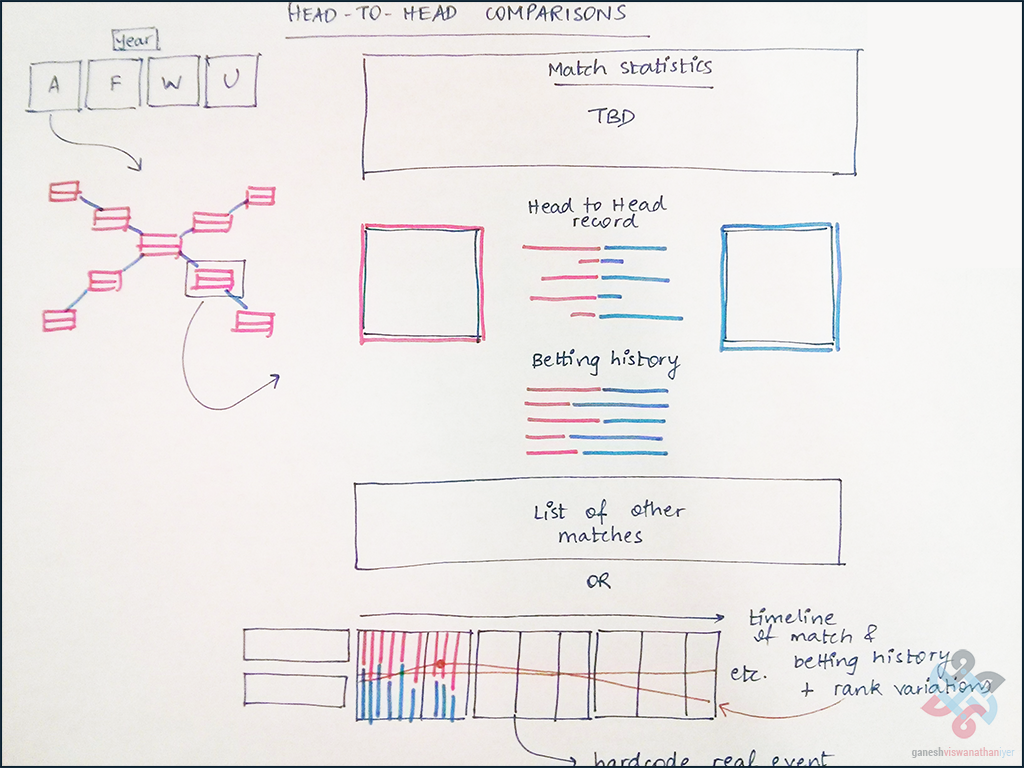 HEAD-TO-HEAD COMPARISONS
year
A F W U
Match statistics
TBD
Head to Head
record
Betting history
List of other
matches
OR
timeline
of match &
betting history
+ rank variations
etc.
hardcode real event
ganeshviswanathaniyer